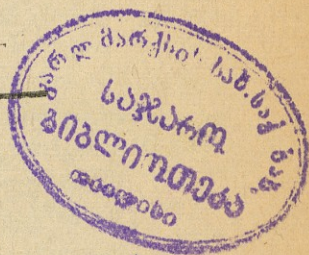 კარლ მარქსის სახ. საქ. სახ.
საჯარო
ბიბლიოთეკა
თბილისი